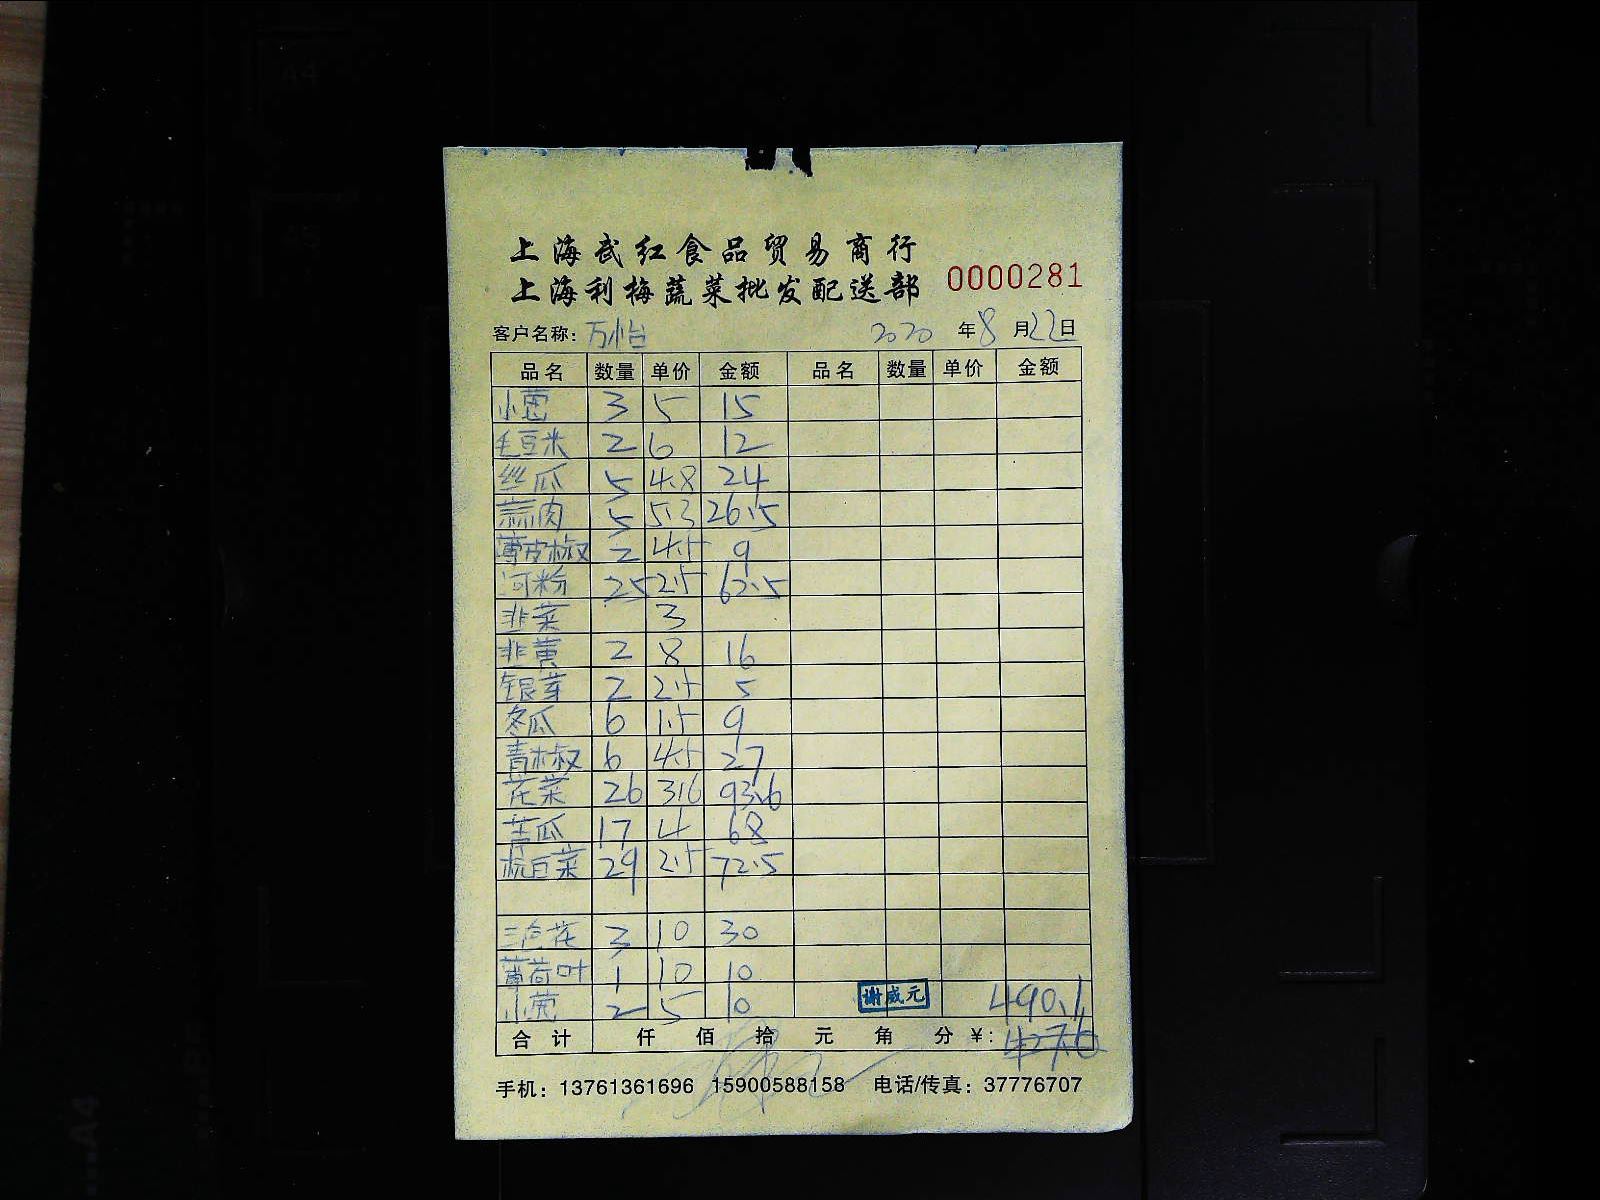 上海武红食品贸易商行
上海利梅蔬菜批发配送部 0000281
客户名称: 万怡 2020 年 8 月 22 日
品名 数量 单价 金额 品名 数量 单价 金额
小葱 3 5 15
毛豆米 2 6 12
丝瓜 5 4.8 24
蒜肉 5 5.3 26.5
薄皮椒 2 4.5 9
河粉 25 2.5 62.5
韭菜 3
韭黄 2 8 16
银芽 2 2.5 5
冬瓜 6 1.5 9
青椒 6 4.5 27
花菜 26 3.6 93.6
苦瓜 17 4 68
杭白菜 29 2.5 72.5
三色花 3 10 30
薄荷叶 1 10 10
小葱 2 5 10 谢威元 490.1
合计 仟 佰 拾 元 角 分 ¥:
手机: 13761361696 15900588158 电话/传真: 37776707